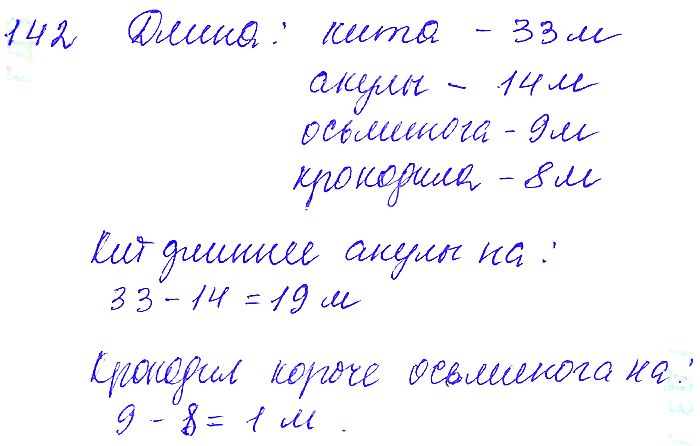 142 Длина: кита - 33 м
акулы - 14 м
осьминога - 9 м
крокодила - 8 м
Кит длиннее акулы на:
33 - 14 = 19 м
Крокодил короче осьминога на:
9 - 8 = 1 м.